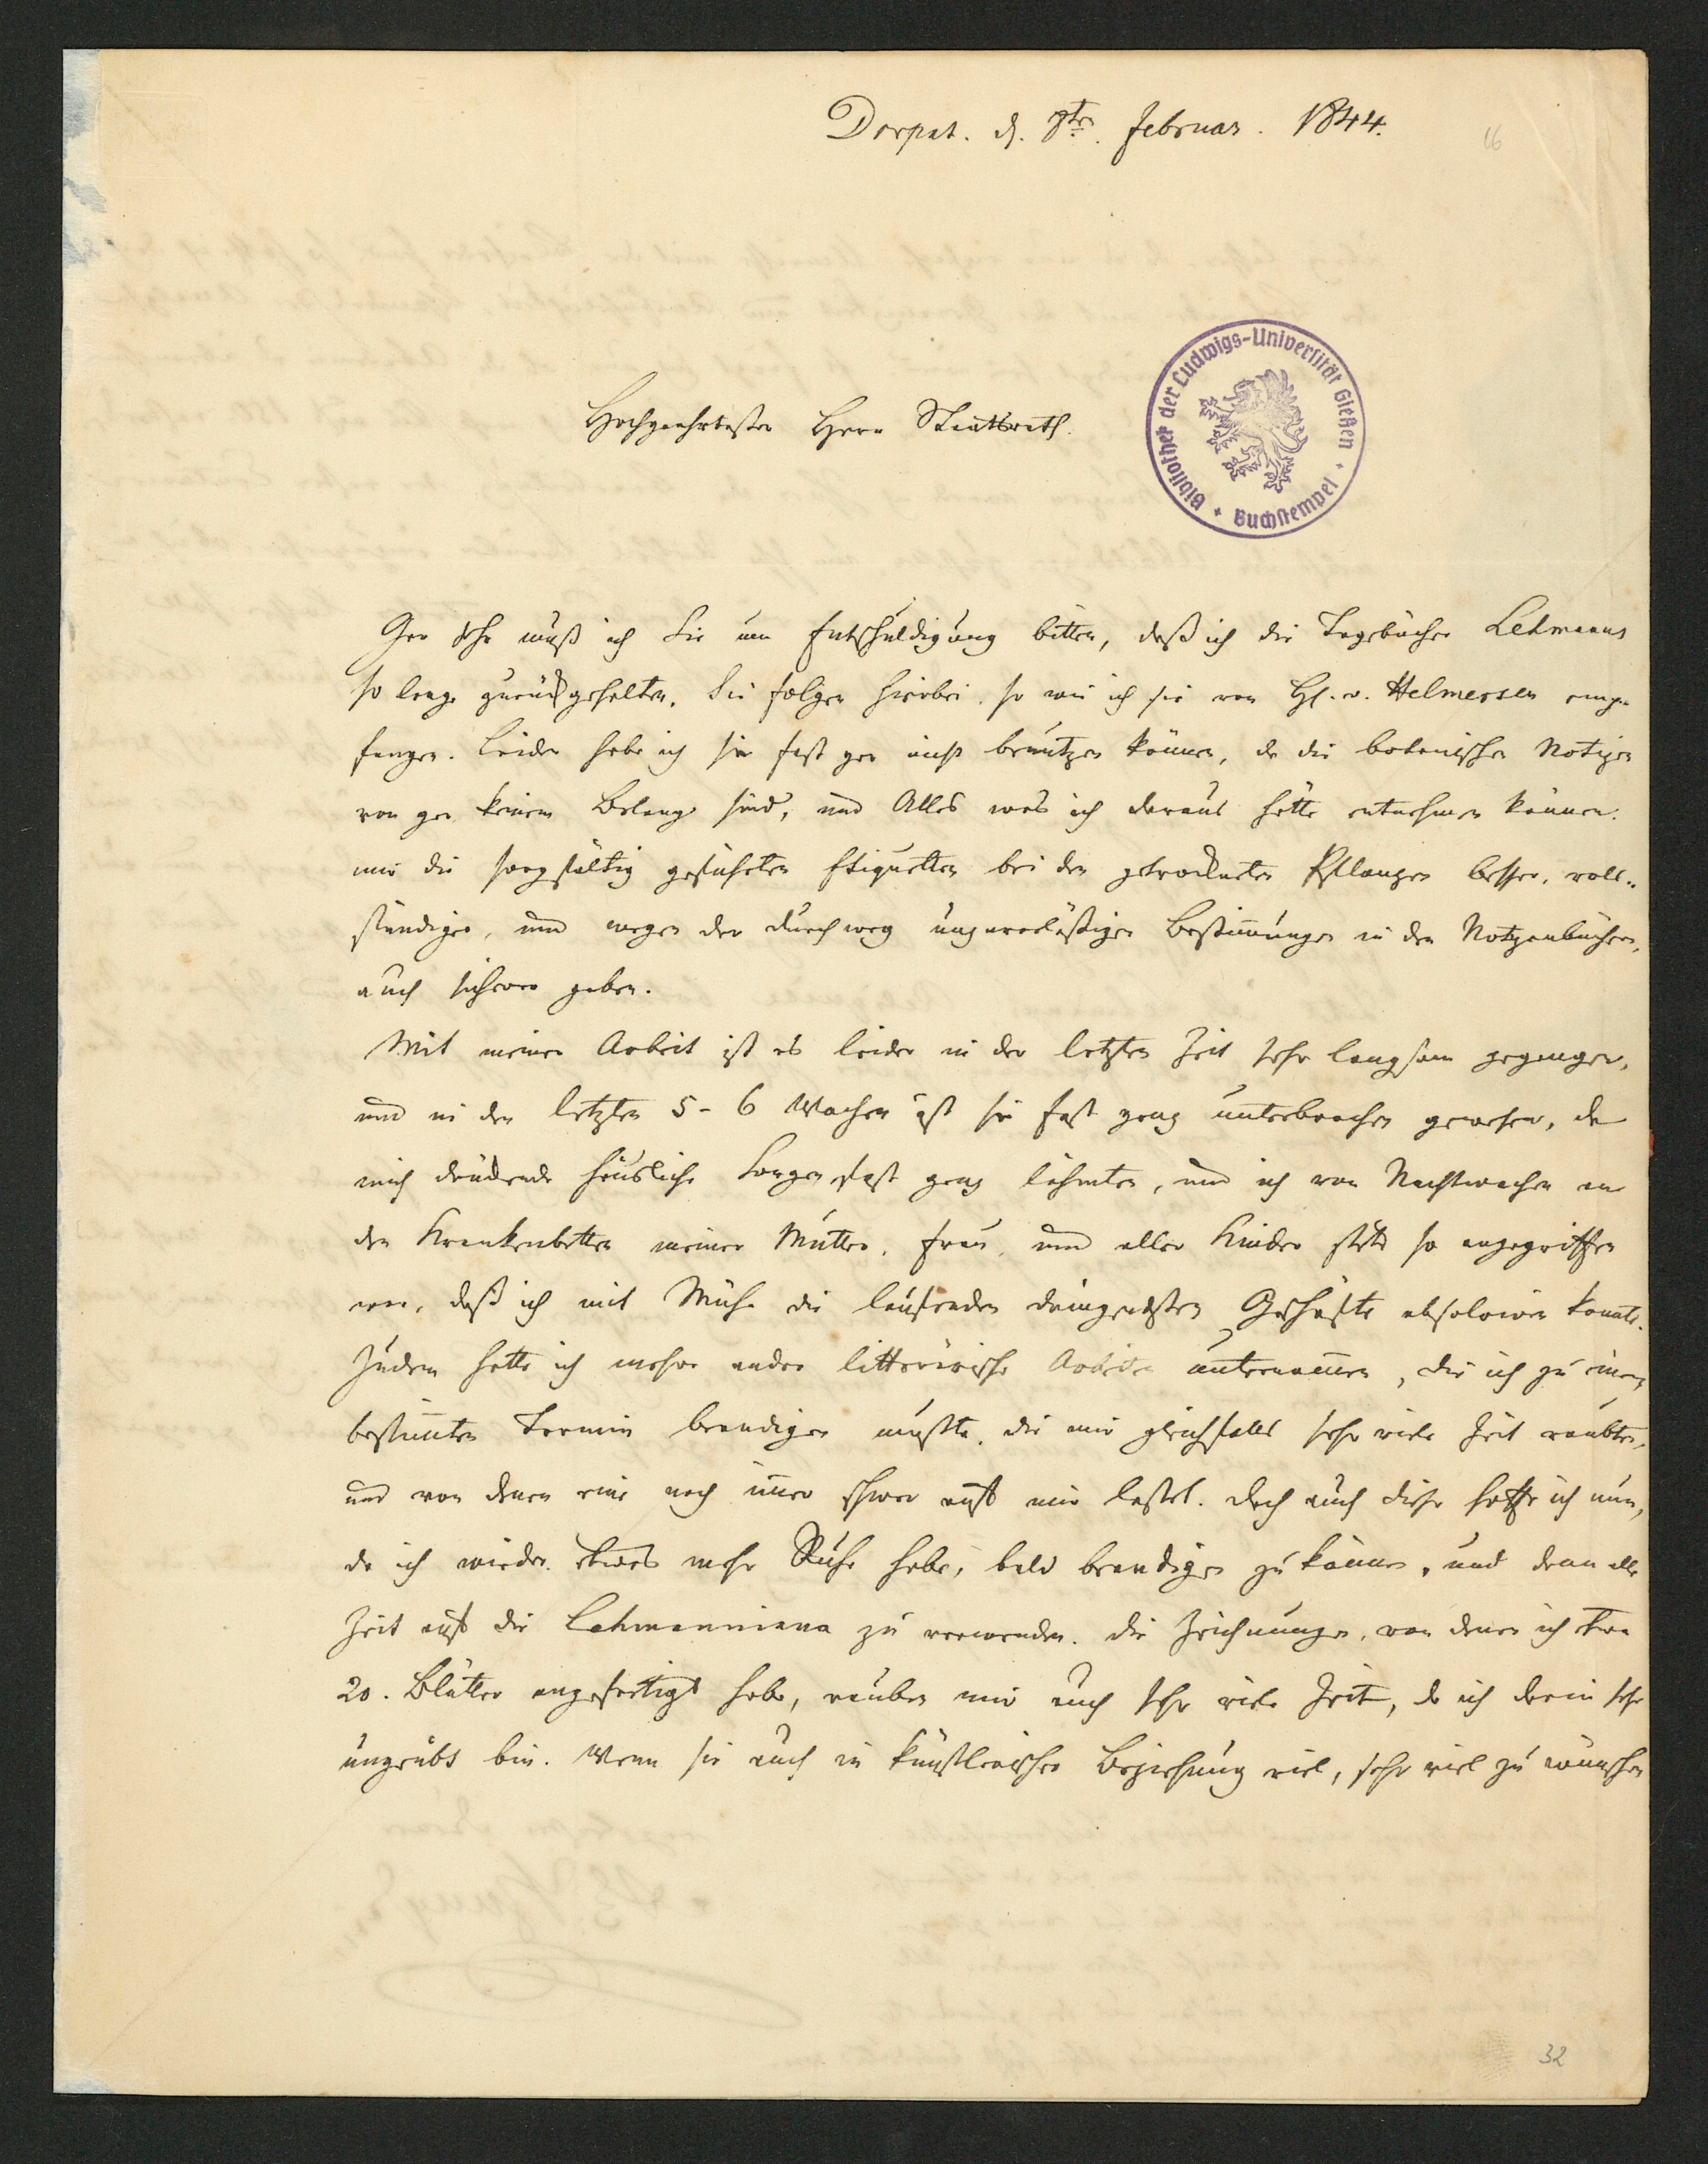 Dorpat. d. 8ten. Februar. 1844.
16
Hochgeehrtester Herr Staatsrath.
Bibliothek der Ludwigs-Universität Gießen + Buchstempel +
Gar sehr muß ich Sie um Entschuldigung bitten, daß ich die Tagebücher Lehmanns
so lange zurückgehalten. Sie folgen hierbei, so wie ich sie von H. v. Helmersen emp-
fangen. Leider habe ich sie fast gar nicht benutzen können, da die botanischen Notizen
von gar keinem Belang sind, und Alles was ich daraus hätte entnehmen können.
mir die sorgfältig geführten Etiquetten bei den getrockneten Pflanzen besser, voll-
ständiger, und wegen der durchweg unzuverläßigen Bestimungen in den Notizenbüchern,
auch sicherer geben.
Mit meiner Arbeit ist es leider in der letzten Zeit sehr langsam gegangen,
und in den letzten 5-6 Wochen ist sie fast ganz unterbrochen gewesen, da
mich drückende häusliche Sorgen fast ganz lähmten, und ich von Nachtwachen an
den Krankenbetten meiner Mutter, Frau, und aller Kinder stets so angegriffen
war, daß ich mit Mühe die laufenden dringendsten Geschäfte absolviren konnte.
Zudem hatte ich mehre andre litterärische Arbeiten unternomen, die ich zu einem
bestimten Termin beendigen mußte, die mir gleichfalls sehr viele Zeit raubten,
und von denen eine noch imer schwer auf mir lastet. Doch auch diese hoffe ich nun,
da ich wieder etwas mehr Ruhe habe, bald beendigen zu können, und dann alle
Zeit auf die Lehmanniana zu verwenden. Die Zeichnungen, von denen ich etwa
20. Blätter angefertigt habe, rauben mir auch sehr viele Zeit, da ich darin sehr
ungeübt bin. Wenn sie auch in künstlerischer Beziehung viel, sehr viel zu wünschen
32